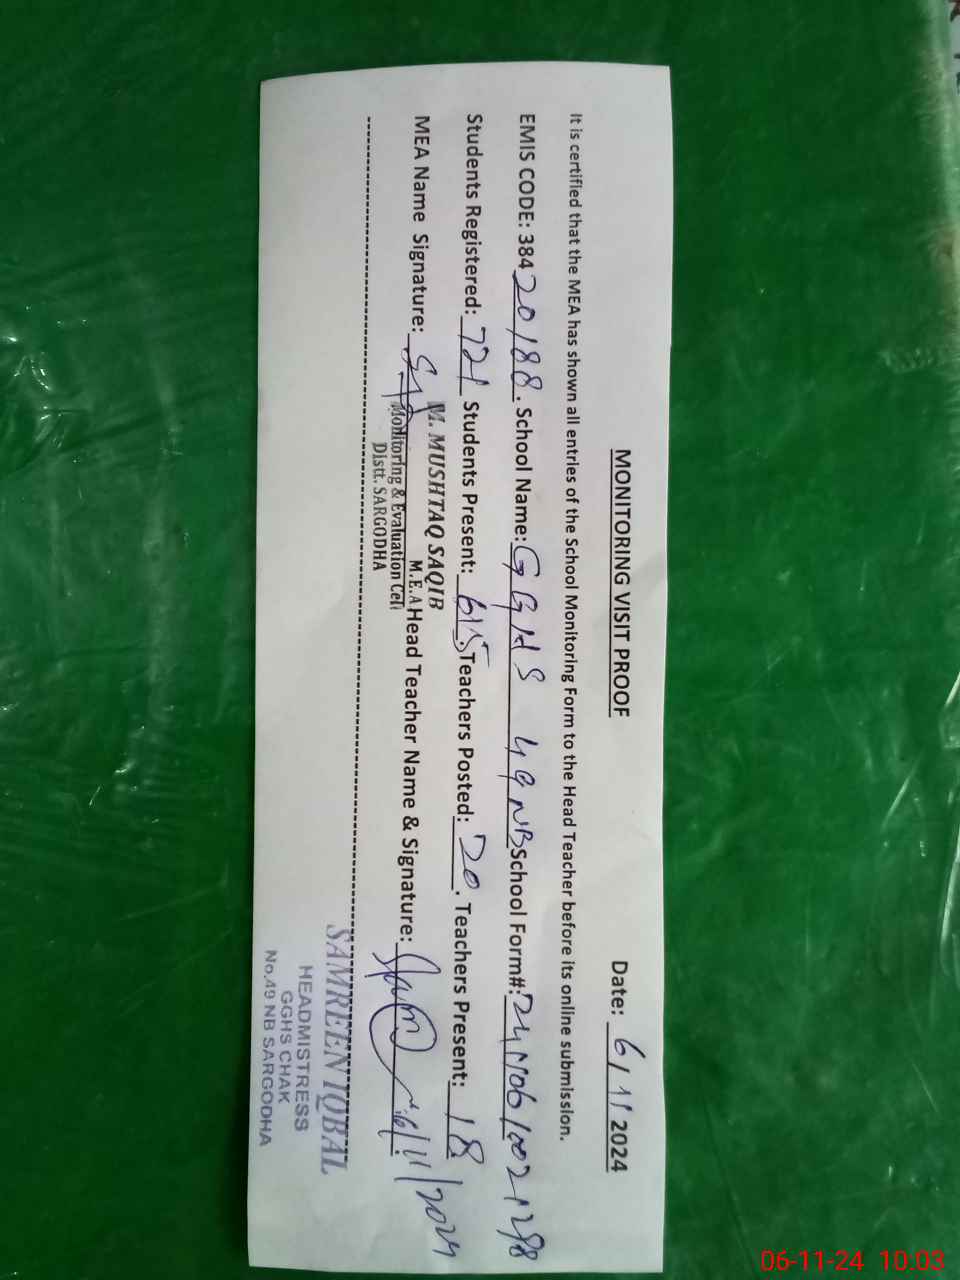 MONITORING VISIT PROOF
Date: 6/11/2024
It is certified that the MEA has shown all entries of the School Monitoring Form to the Head Teacher before its online submission.
EMIS CODE: 38420188. School Name: GGHS 49NB School Form#:
Students Registered: 721 Students Present: 615. Teachers Posted: 20. Teachers Present: 18
M. MUSHTAQ SAQIB
M.E.A
MEA Name Signature: Head Teacher Name & Signature: 6/11/2024
Monitoring & Evaluation Cell
Distt. SARGODHA
SAMREEN IQBAL
HEADMISTRESS
GGHS CHAK
No.49 NB SARGODHA
06-11-24 10.03